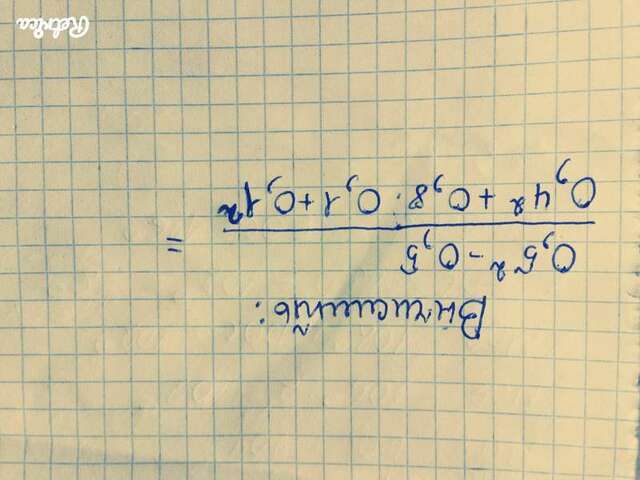 Вычислить:
0,5² - 0,5
=
0,4² + 0,8 : 0,1 + 0,1²
Retrica